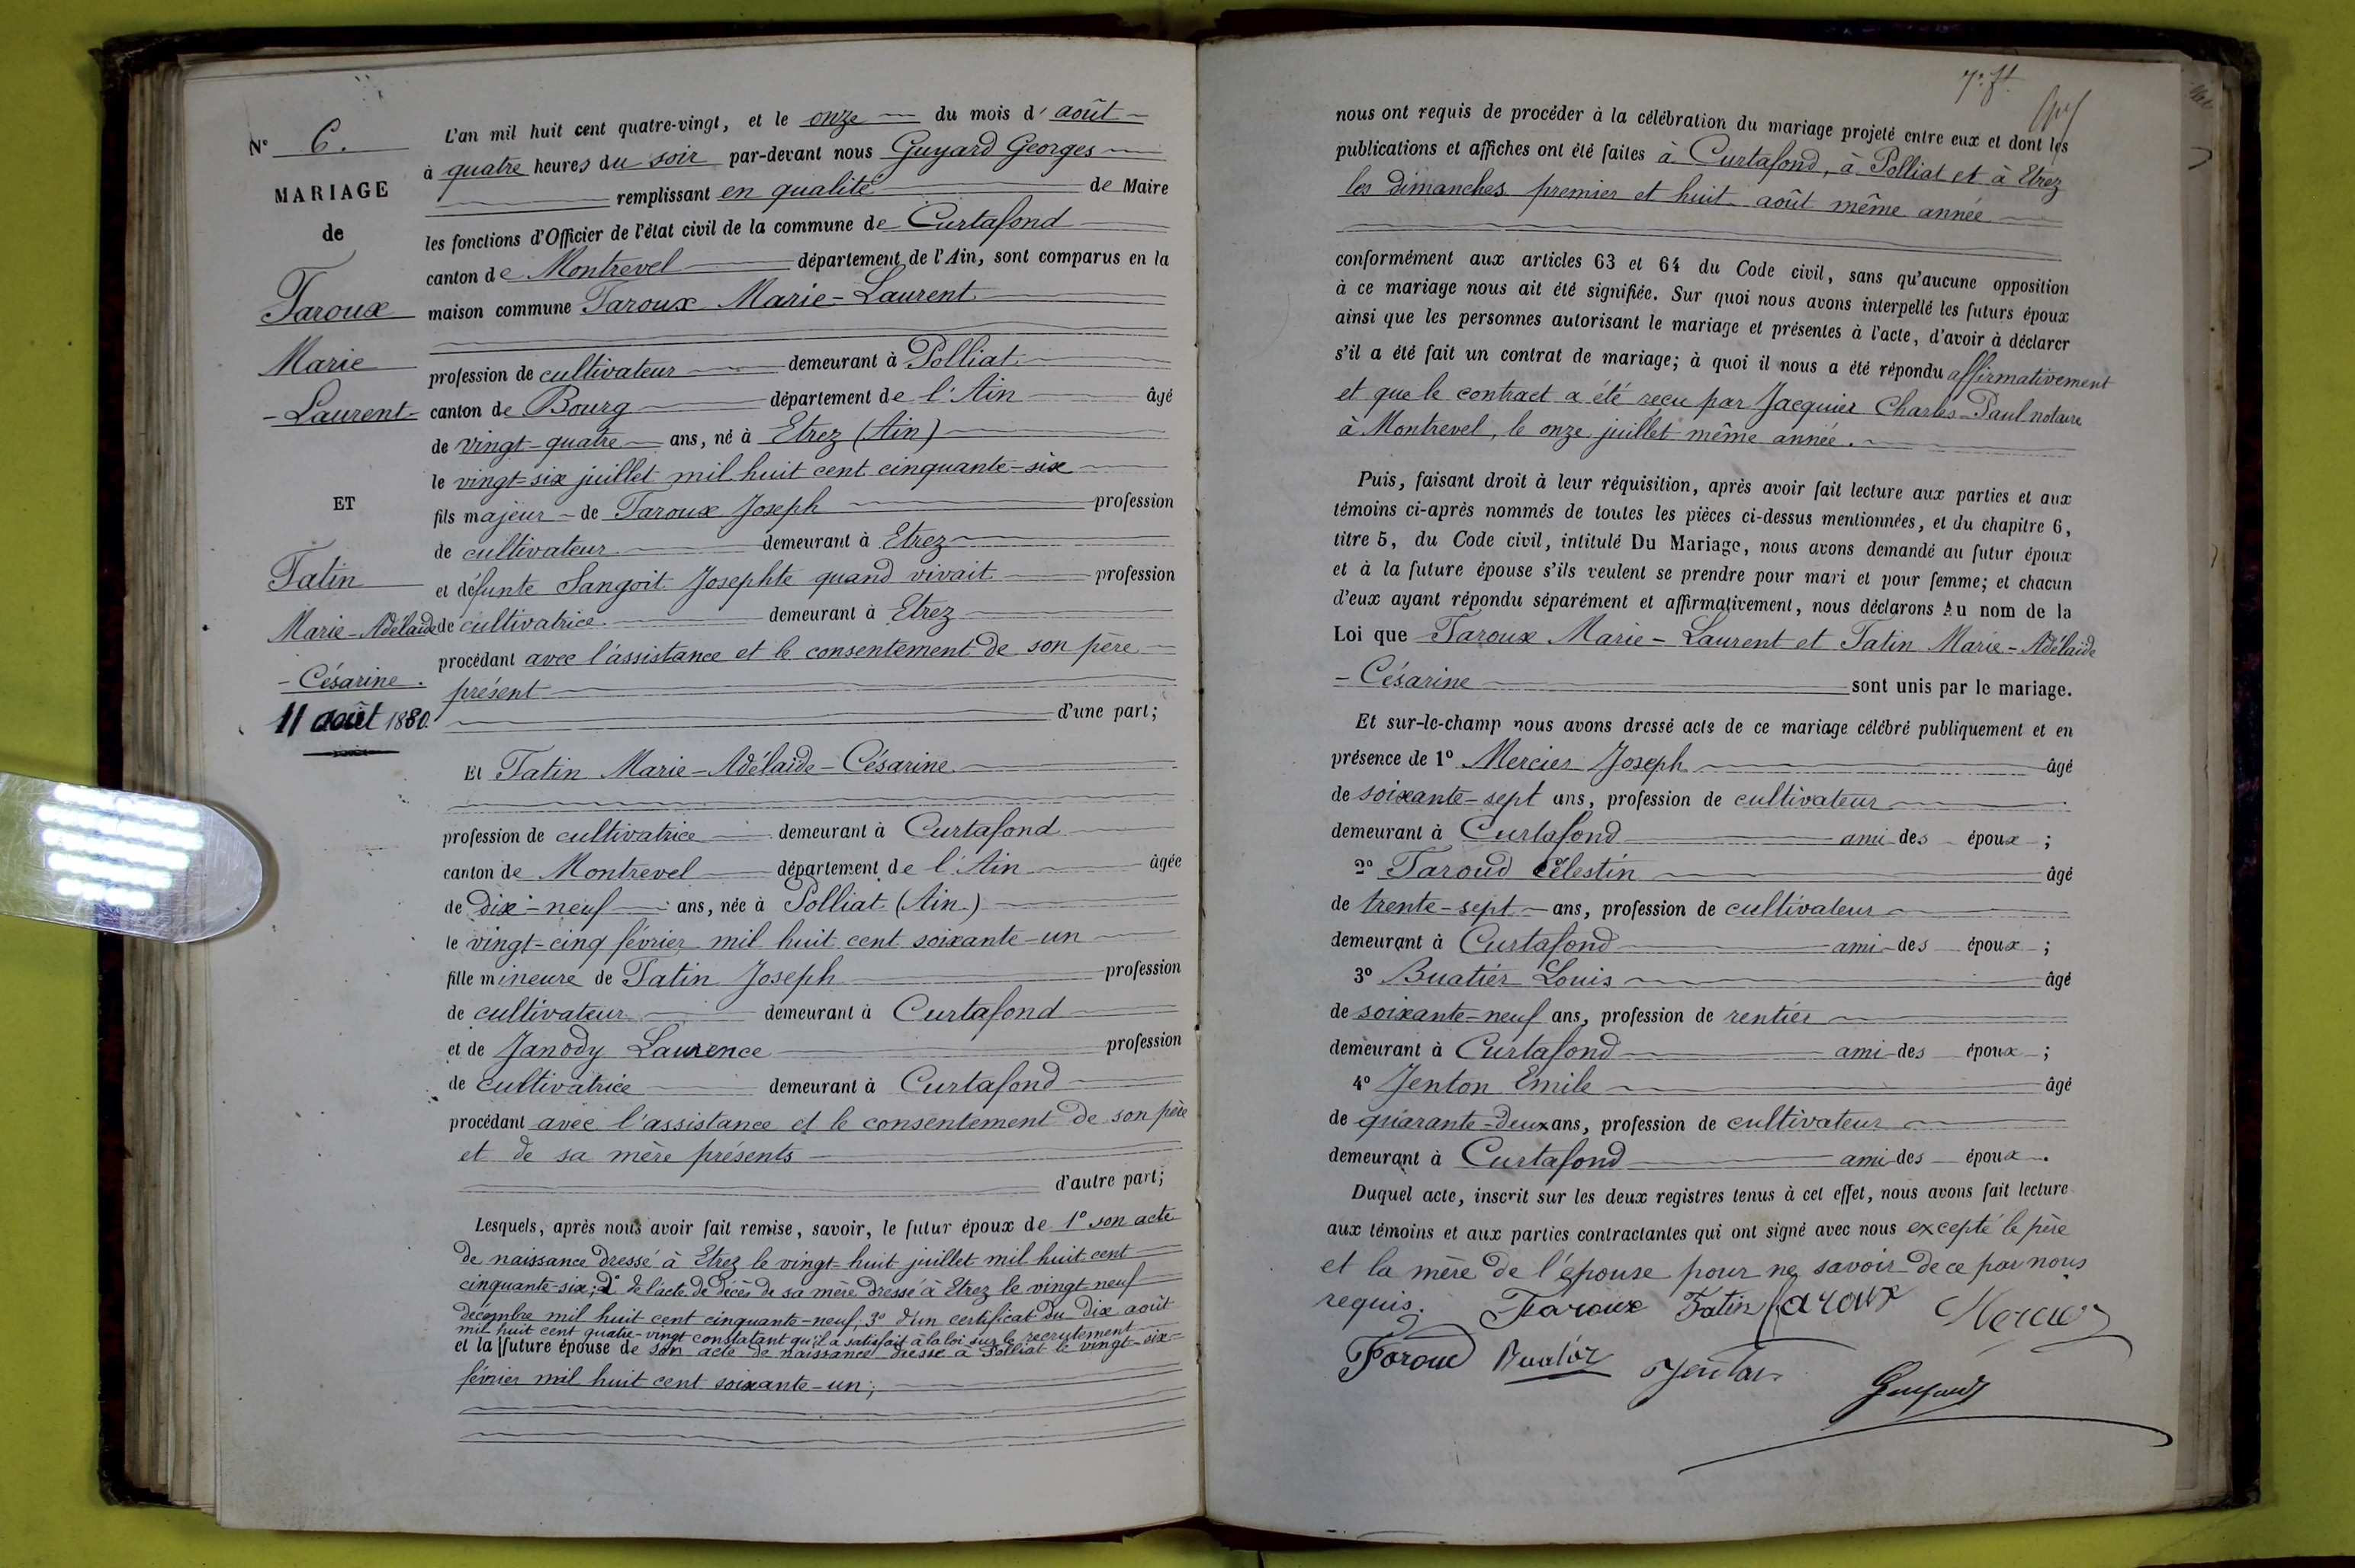 N° 6.
MARIAGE
de
Taroux
Marie
-Laurent-
ET
Tatin
Marie-Adélaide
-Césarine.
11 août 1880.
L'an mil huit cent quatre-vingt, et le onze du mois d' août
à quatre heures du soir par-devant nous Guyard Georges
remplissant en qualité de Maire
les fonctions d'Officier de l'état civil de la commune de Curtafond
canton de Montrevel département de l'Ain, sont comparus en la
maison commune Taroux Marie-Laurent
profession de cultivateur demeurant à Polliat
canton de Bourg département de l'Ain âgé
de vingt-quatre ans, né à Etrez (Ain)
le vingt-six juillet mil huit cent cinquante-six
fils majeur de Taroux Joseph profession
de cultivateur demeurant à Etrez
et défunte Sangoit Josephte quand vivait profession
de cultivatrice demeurant à Etrez
procédant avec l'assistance et le consentement de son père
présent
d'une part;
Et Tatin Marie-Adélaide-Césarine
profession de cultivatrice demeurant à Curtafond
canton de Montrevel département de l'Ain âgée
de dix-neuf ans, née à Polliat (Ain)
le vingt-cinq février mil huit cent soixante-un
fille mineure de Tatin Joseph profession
de cultivateur demeurant à Curtafond
et de Janody Laurence profession
de cultivatrice demeurant à Curtafond
procédant avec l'assistance et le consentement de son père
et de sa mère présents
d'autre part;
Lesquels, après nous avoir fait remise, savoir, le futur époux de 1° son acte
de naissance dressé à Etrez le vingt-huit juillet mil huit cent
cinquante-six; 2° de l'acte de décès de sa mère dressé à Etrez le vingt-neuf
décembre mil huit cent cinquante-neuf, 3° d'un certificat du dix août
mil huit cent quatre-vingt constatant qu'il a satisfait à la loi sur le recrutement
et la future épouse de son acte de naissance dressé à Polliat le vingt-six
février mil huit cent soixante-un;
nous ont requis de procéder à la célébration du mariage projeté entre eux et dont les
publications et affiches ont été faites à Curtafond, à Polliat et à Etrez
les dimanches premier et huit août même année
conformément aux articles 63 et 64 du Code civil, sans qu'aucune opposition
à ce mariage nous ait été signifiée. Sur quoi nous avons interpellé les futurs époux
ainsi que les personnes autorisant le mariage et présentes à l'acte, d'avoir à déclarer
s'il a été fait un contrat de mariage; à quoi il nous a été répondu affirmativement
et que le contract a été reçu par Jacquier Charles-Paul notaire
à Montrevel, le onze juillet même année.
Puis, faisant droit à leur réquisition, après avoir fait lecture aux parties et aux
témoins ci-après nommés de toutes les pièces ci-dessus mentionnées, et du chapitre 6,
titre 5, du Code civil, intitulé Du Mariage, nous avons demandé au futur époux
et à la future épouse s'ils veulent se prendre pour mari et pour femme; et chacun
d'eux ayant répondu séparément et affirmativement, nous déclarons Au nom de la
Loi que Taroux Marie-Laurent et Tatin Marie-Adélaide
-Césarine sont unis par le mariage.
Et sur-le-champ nous avons dressé acte de ce mariage célébré publiquement et en
présence de 1° Mercier Joseph âgé
de soixante-sept ans, profession de cultivateur
demeurant à Curtafond ami des époux;
2° Taroud Célestin âgé
de trente-sept ans, profession de cultivateur
demeurant à Curtafond ami des époux;
3° Buatier Louis âgé
de soixante-neuf ans, profession de rentier
demeurant à Curtafond ami des époux;
4° Jenton Emile âgé
de quarante-deux ans, profession de cultivateur
demeurant à Curtafond ami des époux.
Duquel acte, inscrit sur les deux registres tenus à cet effet, nous avons fait lecture
aux témoins et aux parties contractantes qui ont signé avec nous excepté le père
et la mère de l'épouse pour ne savoir de ce par nous
requis. Taroux Tatin taroux Mercier
Taroud Buatier Jenton Guyard